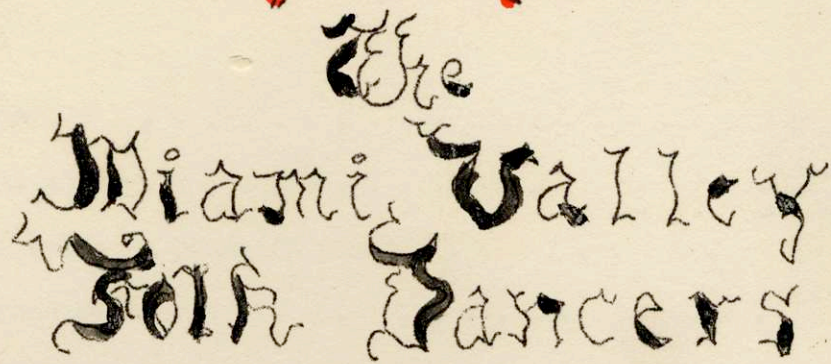 The
Miami Valley
Folk Dancers